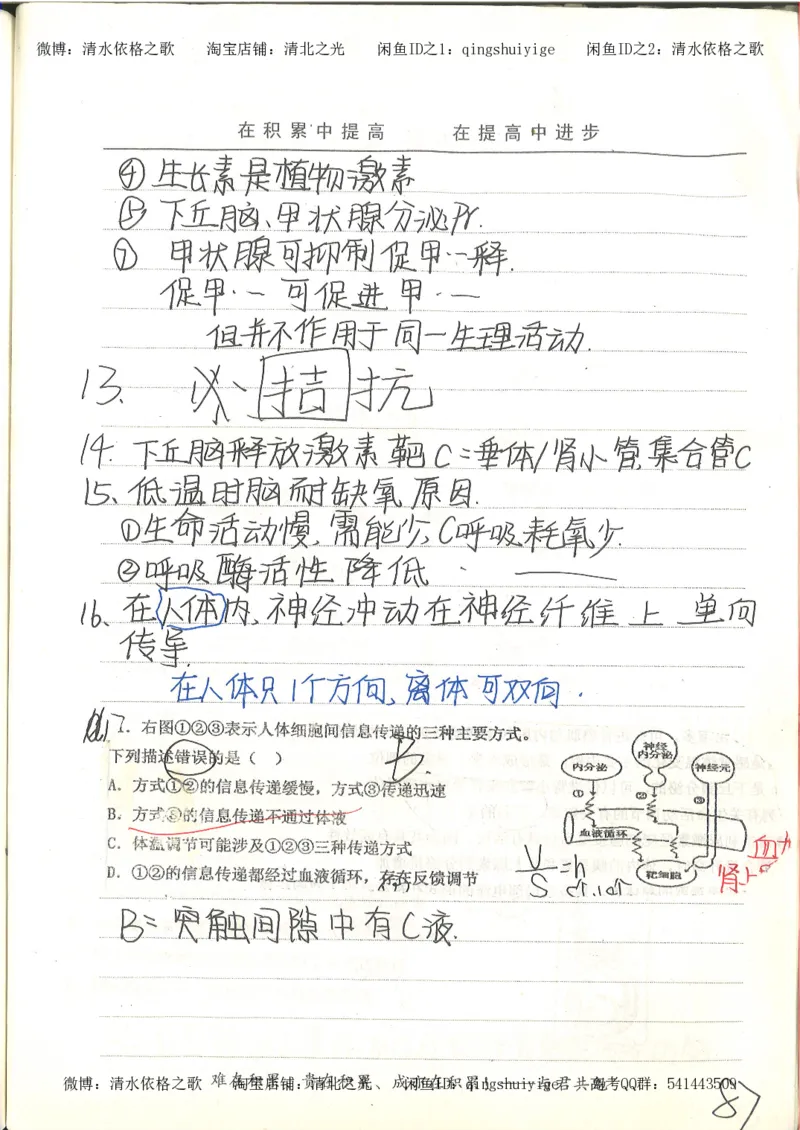 微博：清水依格之歌 淘宝店铺：清北之光 闲鱼ID之1：qingshuiyige 闲鱼ID之2：清水依格之歌
在积累中提高 在提高中进步
④ 生长素是植物激素
⑤ 下丘脑、甲状腺分泌Pr.
⑦ 甲状腺可抑制促甲…释.
促甲·一 可促进甲·一
但并不作用于同一生理活动.
13. 必、拮抗
14. 下丘脑释放激素靶C=垂体/肾小管,集合管C
15、低温时脑耐缺氧原因.
①生命活动慢,需能少,C呼吸耗氧少.
②呼吸酶活性降低
16、在人体内,神经冲动在神经纤维上单向
传导.
在人体只1个方向,离体可双向.
1. 右图①②③表示人体细胞间信息传递的三种主要方式。
下列描述错误的是（ ） B.
A. 方式①②的信息传递缓慢，方式③传递迅速
B. 方式③的信息传递不通过体液
C. 体温调节可能涉及①②③三种传递方式
D. ①②的信息传递都经过血液循环，存在反馈调节
内分泌
神经
内分泌
神经元
① ② ③
血液循环
靶细胞
B= 突触间隙中有C液.
微博：清水依格之歌 淘宝店铺：清北之光、 闲鱼ID：qingshuiyige 高考QQ群：541443509
87